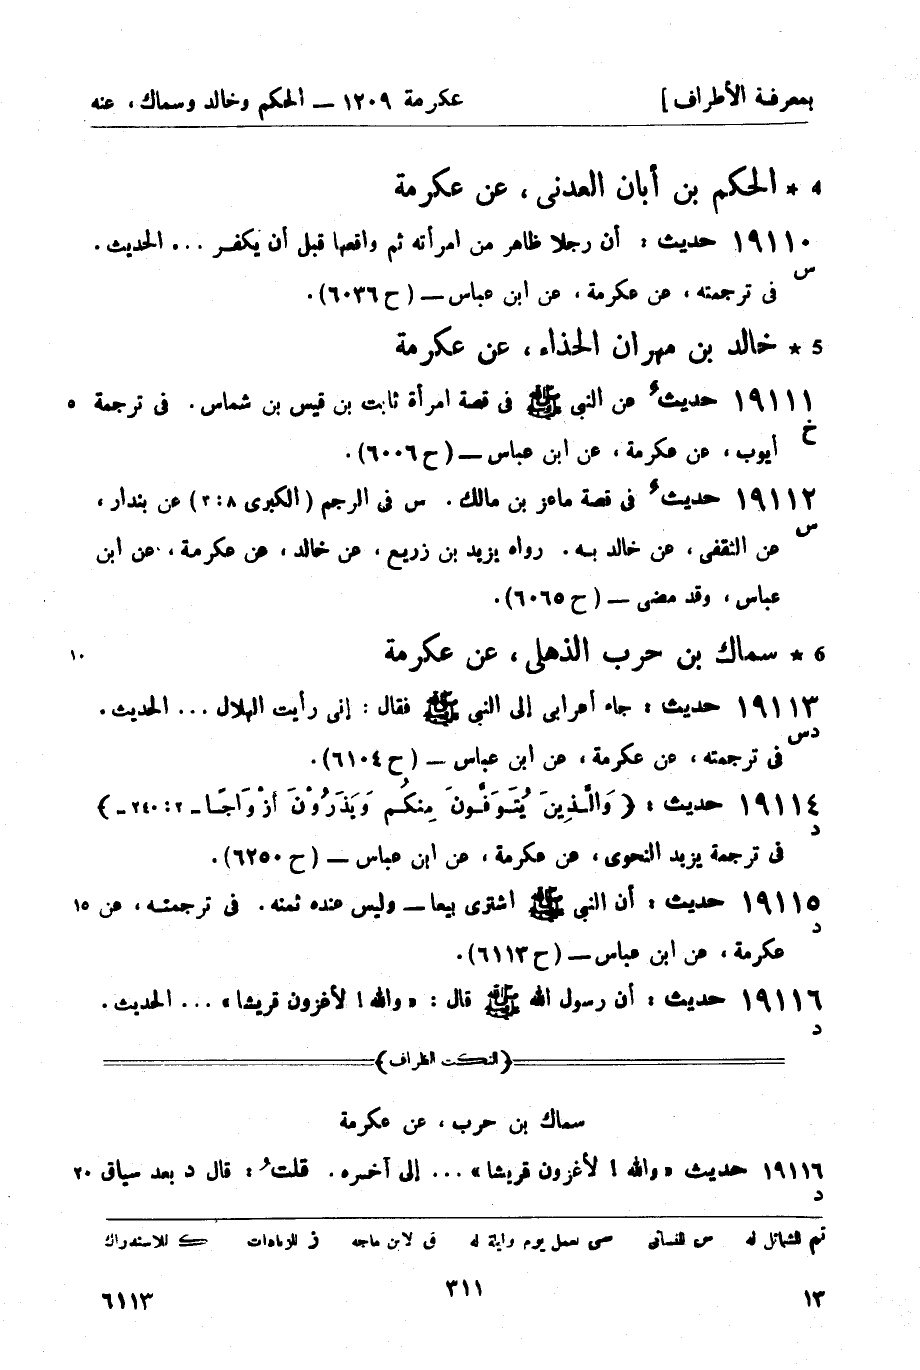 بمعرفة الأطراف ] عكرمة ١٢٠٩ — الحكم وخالد وسماك ، عنه
4 * الحكم بن أبان العدنى ، عن عكرمة
١٩١١٠ حديث : أن رجلا ظاهر من امرأته ثم واقعها قبل أن يكفـر ... الحديث .
س
فى ترجمته ، عن عكرمة ، عن ابن عباس — ( ح ٦٠٣٦) .
5 * خالد بن مهران الحذاء ، عن عكرمة
١٩١١١ حديث ء عن النبى ﷺ فى قصة امرأة ثابت بن قيس بن شماس . فى ترجمة ٥
خ
أيوب ، عن عكرمة ، عن ابن عباس — (ح ٦٠٠٦) .
١٩١١٢ حديث ء فى قصة ماعز بن مالك . س فى الرجم ( الكبرى ٨ : ٣ ) عن بندار ،
س
عن الثقفى ، عن خالد بـه . رواه يزيد بن زريع ، عن خالد ، عن عكرمـة ، عن ابن
عباس ، وقد مضى — ( ح ٦٠٦٥) .
6 * سماك بن حرب الذهلى ، عن عكرمة ١٠
١٩١١٣ حديث : جاء أعرابى إلى النبى ﷺ فقال : إنى رأيت الهلال ... الحديث .
دس
فى ترجمته ، عن عكرمة ، عن ابن عباس — ( ح ٦١٠٤) .
١٩١١٤ حديث : ﴿ وَالَّـذِينَ يُتَـوَفَّـونَ مِنكُـم وَيَذَرُوْنَ أَزْوَاجًـا ـ ٢ : ٢٤٠ ـ ﴾
د
فى ترجمة يزيد النحوى ، عن عكرمة ، عن ابن عباس — (ح ٦٢٥٠) .
١٩١١٥ حديث : أن النبى ﷺ اشترى بيعا — وليس عنده ثمنه . فى ترجمتـه ، عن ١٥
د
عكرمة ، عن ابن عباس — (ح ٦١١٣) .
١٩١١٦ حديث : أن رسول الله ﷺ قال : « والله ! لأغزون قريشا » ... الحديث .
د
﴿النـكـت الظراف﴾
سماك بن حرب ، عن عكرمة
١٩١١٦ حديث « والله ! لأغزون قريشا » ... إلى آخـره . قلت : قال د بعد سياق ٢٠
د
تم الشمائل له س للنسائى سى لعمل يوم وليلة له ق لابن ماجه ز للزيادات ك للاستدراك
١٣ ٣١١ ٦١١٣